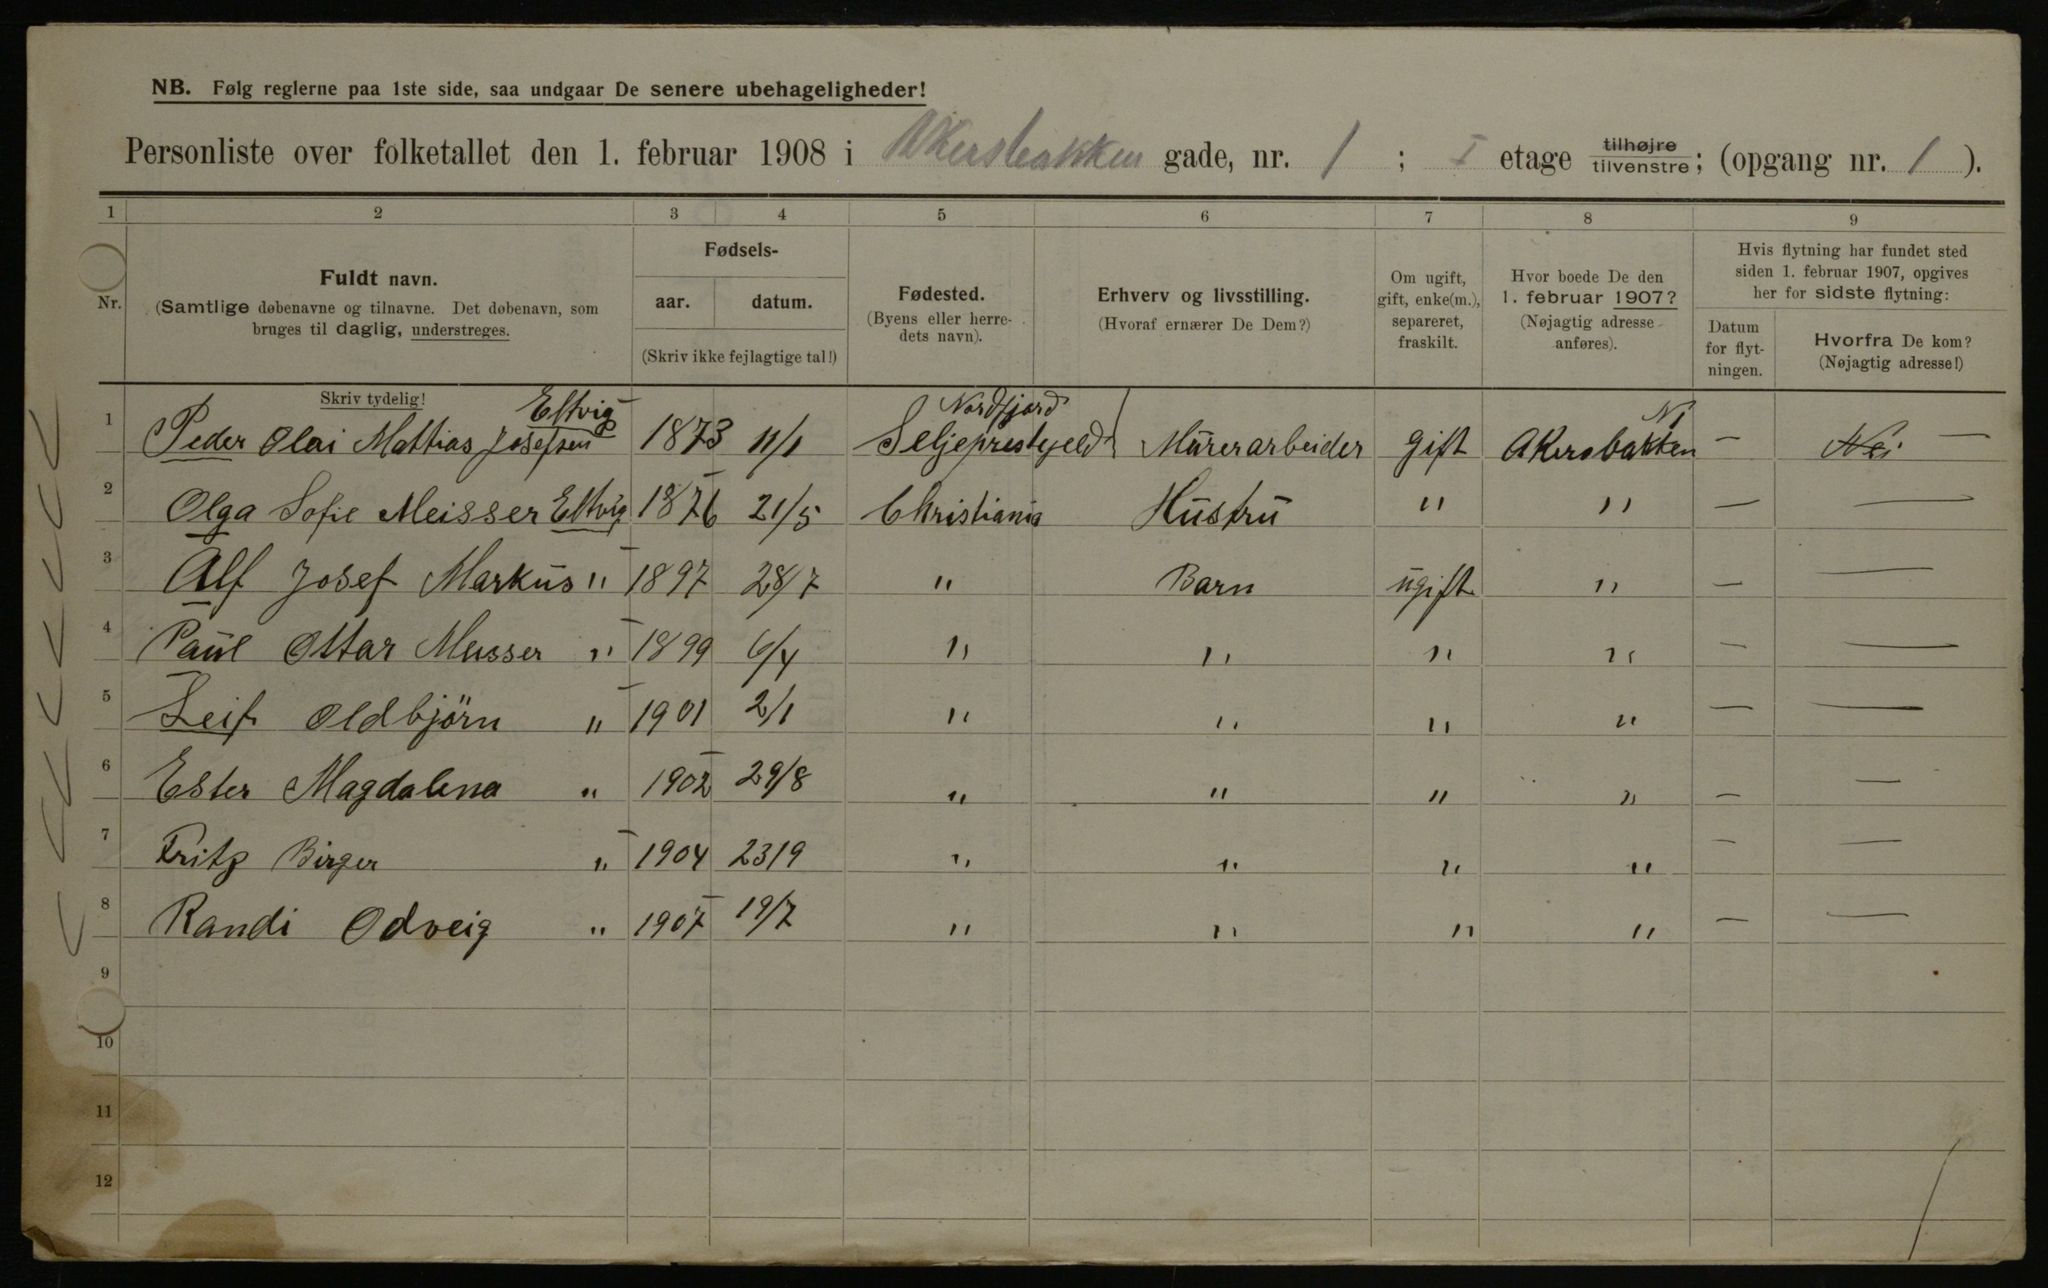 NB. Følg reglerne paa 1ste side, saa undgaar De senere ubehageligheder!
Personliste over folketallet den 1. februar 1908 i Akersbakken gade, nr. 1 ; I etage tilhøjre tilvenstre; (opgang nr. 1 ).
1 2 3 4 5 6 7 8 9
Nr.
Fuldt navn.
(Samtlige døbenavne og tilnavne. Det døbenavn, som
bruges til daglig, understreges.
Skriv tydelig!
Fødsels-
aar. datum.
(Skriv ikke fejlagtige tal!)
Fødested.
(Byens eller herre-
dets navn).
Erhverv og livsstilling.
(Hvoraf ernærer De Dem?)
Om ugift,
gift, enke(m.),
separeret,
fraskilt.
Hvor boede De den
1. februar 1907?
(Nøjagtig adresse
anføres).
Hvis flytning har fundet sted
siden 1. februar 1907, opgives
her for sidste flytning:
Datum
for flyt-
ningen.
Hvorfra De kom?
(Nøjagtig adresse!)
Eltvig Nordfjord N 1
1 Peder Olai Mattias Josefsen 1873 11/1 Seljeprestegjeld Mürerarbeider gift Akersbakken — Nei —
2 Olga Sofie Meisser Eltvig 1876 21/5 Christiania Hüstrü " " — —
3 Alf Josef Markus " 1897 28/7 " Barn ugift " — —
4 Paul Ottar Meisser " 1899 6/4 " " " " — —
5 Leif Oldbjörn " 1901 2/1 " " " " — —
6 Ester Magdalena " 1902 29/8 " " " " — —
7 Fritz Birger " 1904 23/9 " " " " — —
8 Randi Odveig " 1907 19/7 " " " " — —
9
10
11
12